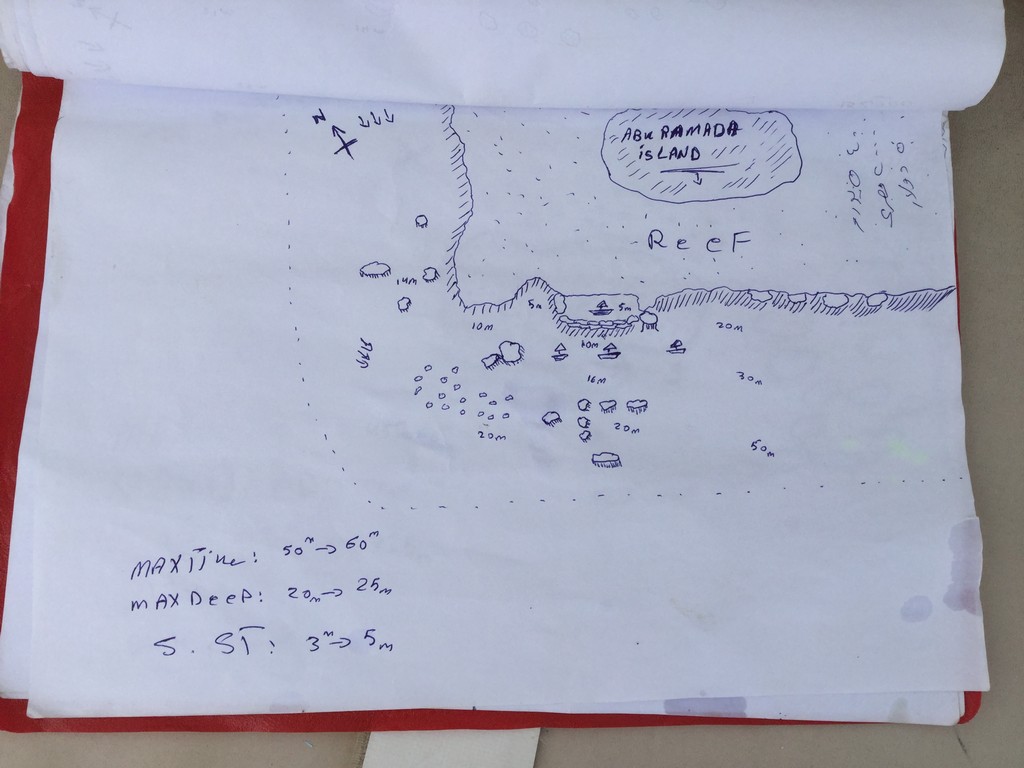 N
ABU RAMADA
iSLAND
ReeF
14m
5m
5m
10m
10m
20m
16m
30m
20m
20m
50m
MAX Time: 50m → 60m
MAX DeeP: 20m → 25m
S. ST: 3m → 5m